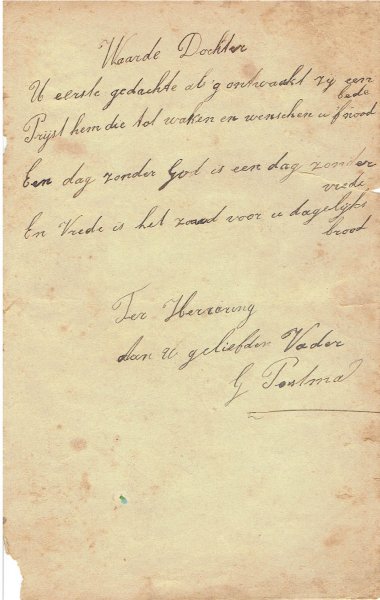 Waarde Dochter
U eerste gedachte als g ontwaakt zy een
bede
Prijst hem die tot waken en wenschen u
Een dag zonder God is een dag zonder
vrede
En Vrede is het zaad voor u dagelijks
brood
Ter Herinring
Aan U geliefden Vader
G Postma